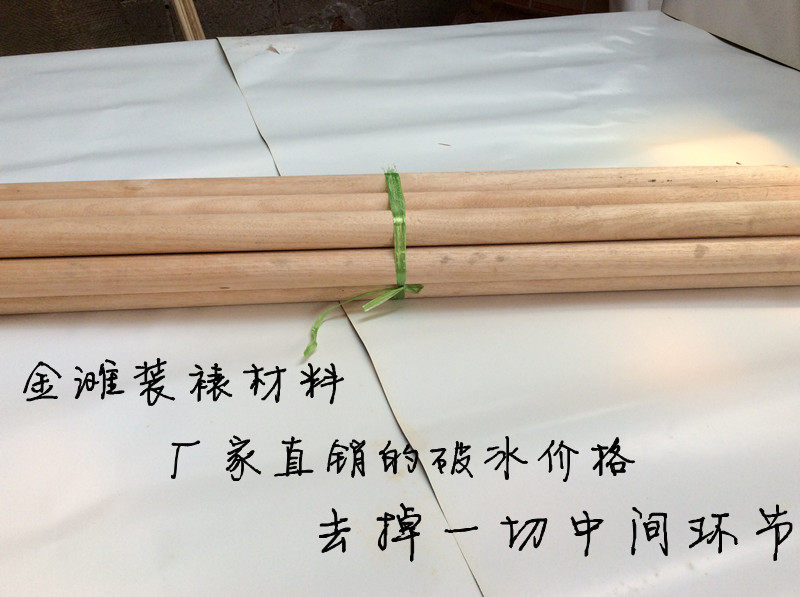 金滩装裱材料
厂家直销的破冰价格
去掉一切中间环节